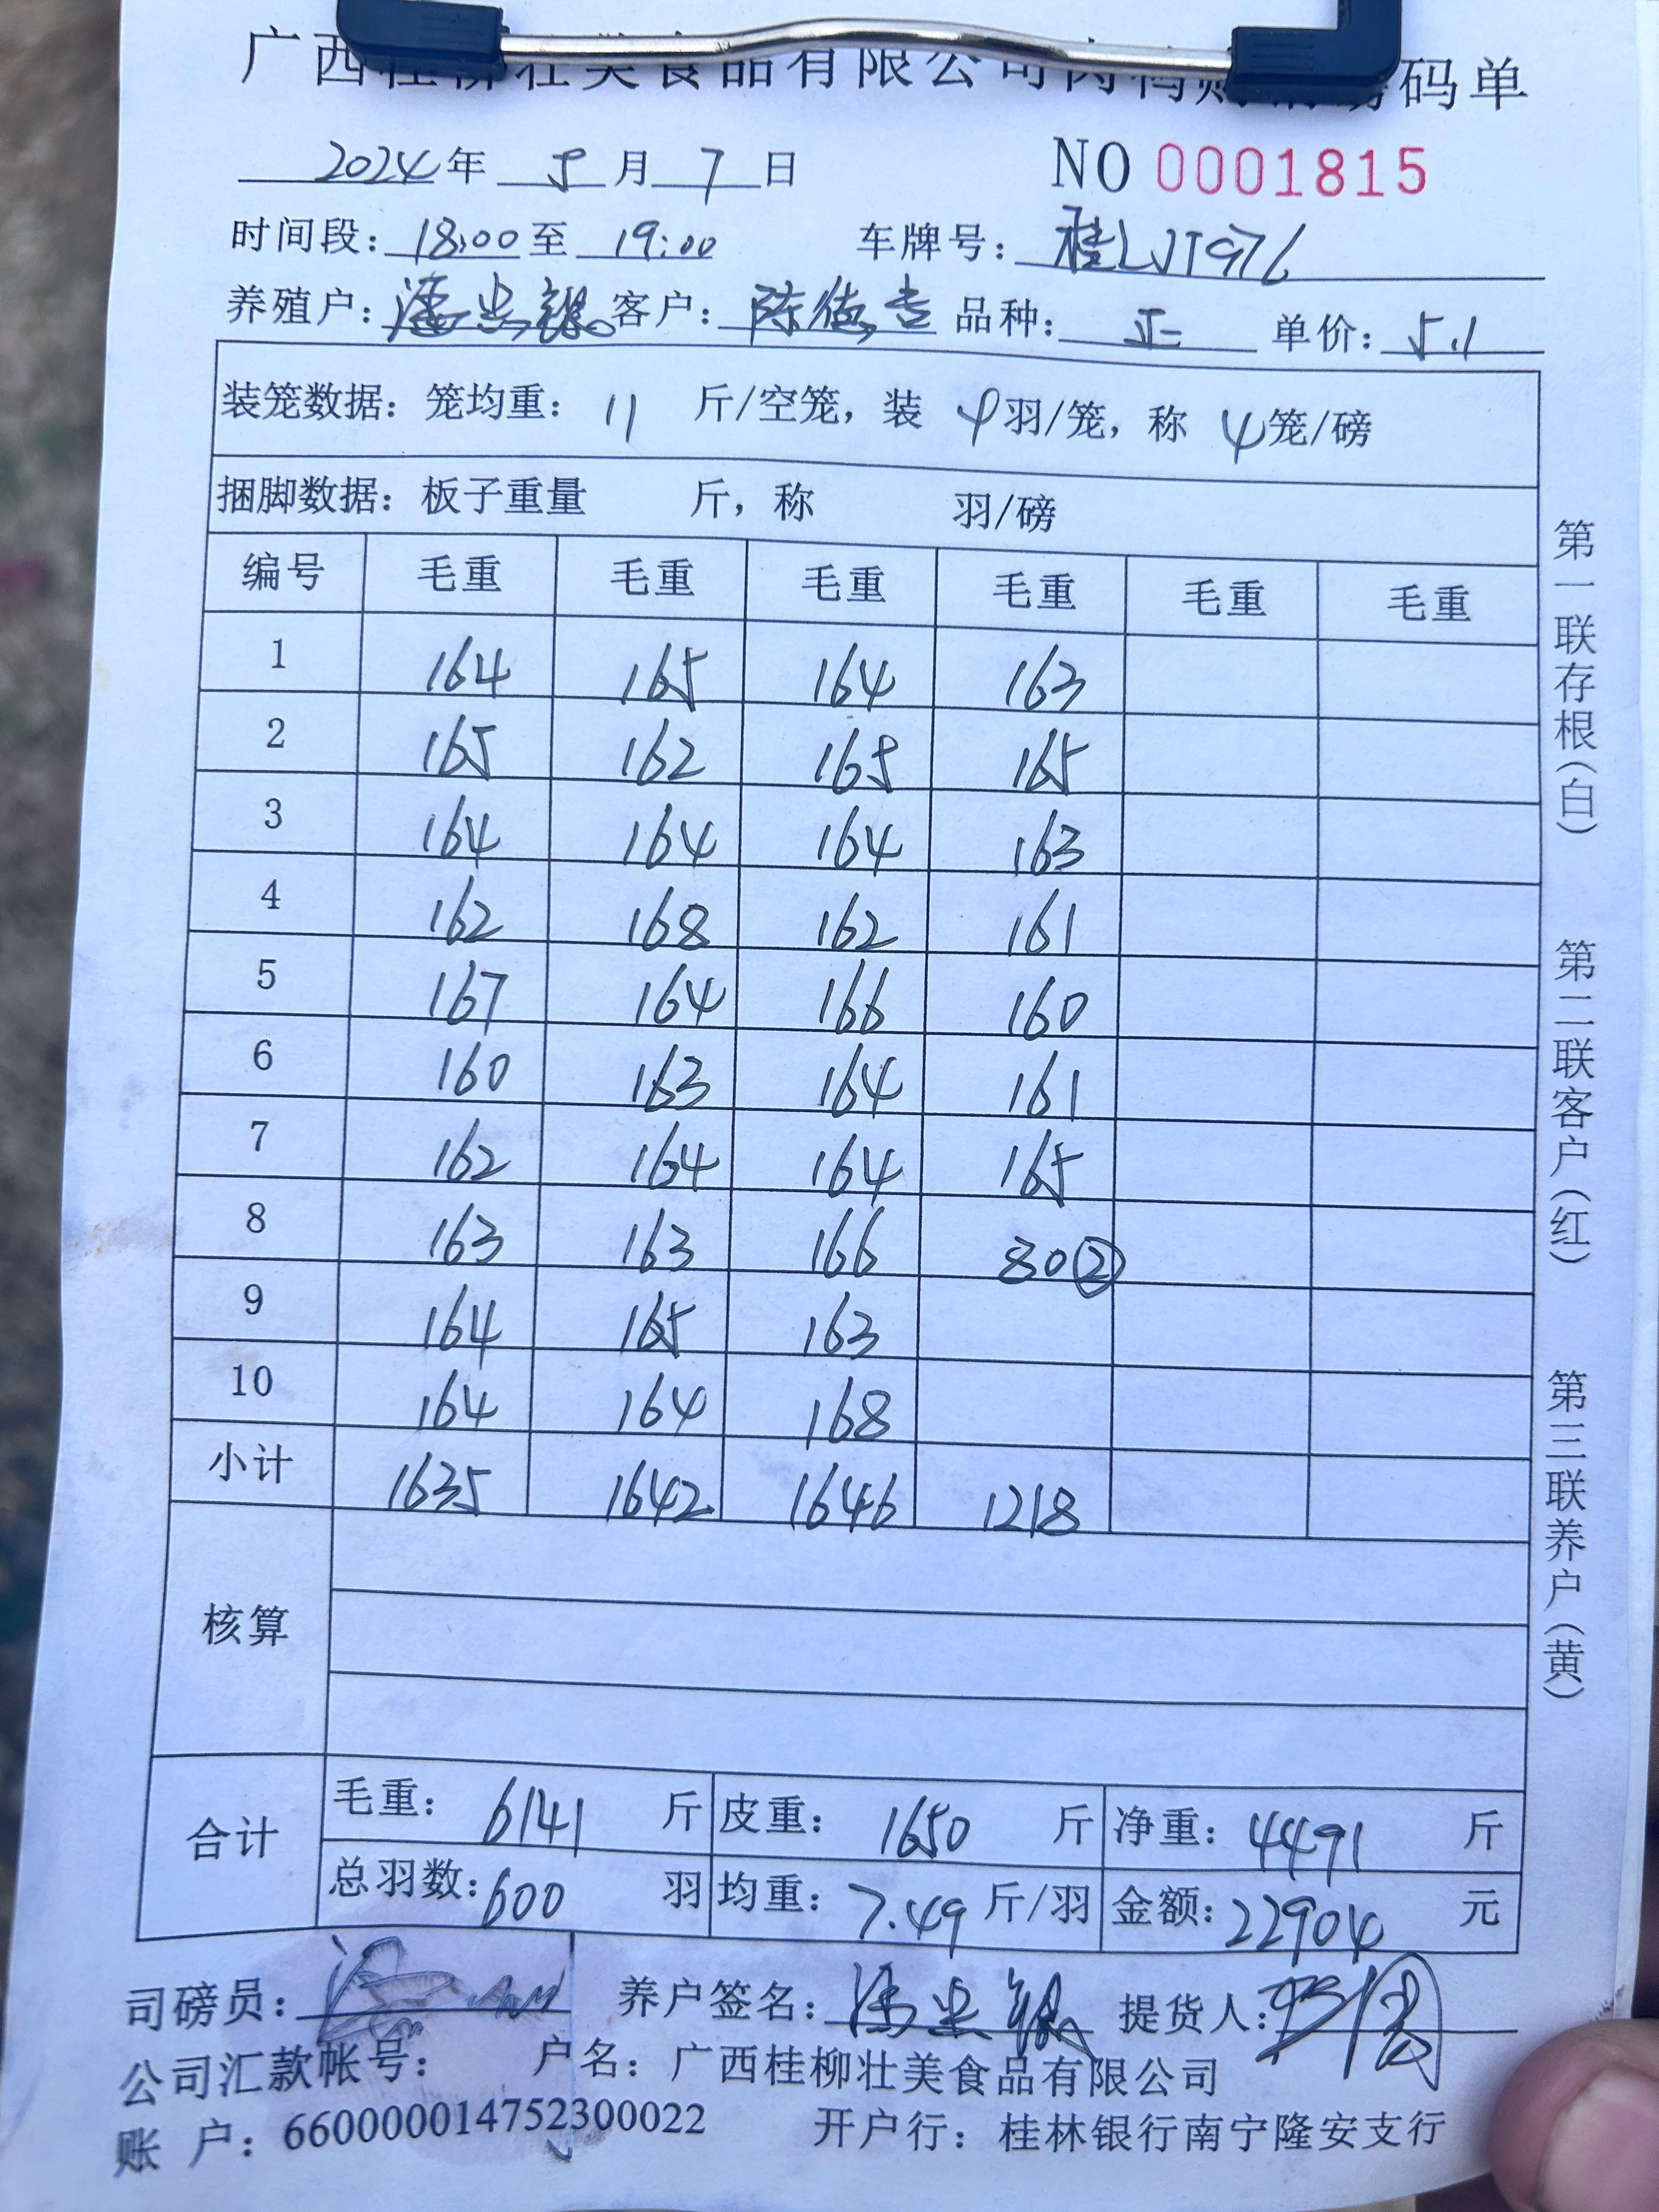 广西桂柳壮美食品有限公司肉鸭购销磅码单
2024年 5月 7日 NO 0001815
时间段: 18:00 至 19:00 车牌号:
养殖户: 客户: 陈德吉 品种: 正 单价: 5.1
装笼数据: 笼均重: 11 斤/空笼, 装 4羽/笼, 称 4笼/磅
捆脚数据: 板子重量 斤, 称 羽/磅
编号 毛重 毛重 毛重 毛重 毛重 毛重
1 164 165 164 163
2 165 162 165 165
3 164 164 164 163
4 162 168 162 161
5 167 164 166 160
6 160 163 164 161
7 162 164 164 165
8 163 163 166 80②
9 164 165 163
10 164 164 168
小计 1635 1642 1646 1218
核算
合计
毛重: 6141 斤 皮重: 1650 斤 净重: 4491 斤
总羽数: 600 羽 均重: 7.49 斤/羽 金额: 22904 元
司磅员: 养户签名: 提货人:
公司汇款帐号: 户名: 广西桂柳壮美食品有限公司
账 户: 660000014752300022 开户行: 桂林银行南宁隆安支行
第一联存根(白)
第二联客户(红)
第三联养户(黄)